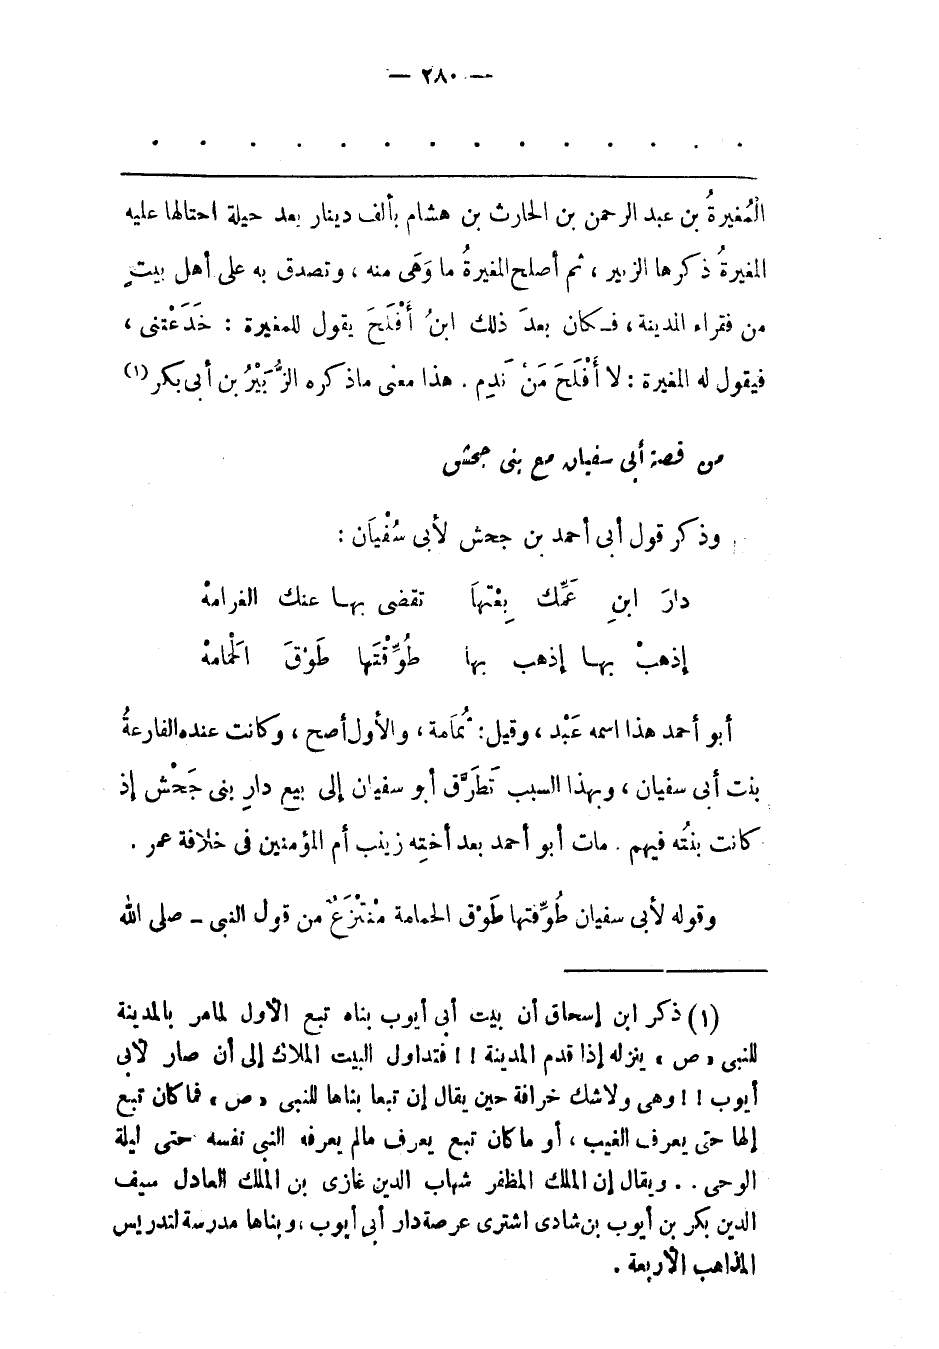 — ٢٨٠ —
. . . . . . . . . . . . . .
الْمُغيرةُ بن عبد الرحمن بن الحارث بن هشام بألف دينار بعد حيلة احتالها عليه
المغيرةُ ذكرها الزبير ، ثم أصلح المغيرةُ ما وَهَى منه ، وتصدق به على أهل بيتٍ
من فقراء المدينة ، فـكان بعدَ ذلك ابنُ أَفْلَحَ يقول للمغيرة : خَدَعْتنى ،
فيقول له المغيرة : لا أَفْلَحَ مَنْ نَدِم . هذا معنى ماذكره الزُّبَيْرُ بن أبى بكر (١)
من قصة أبى سفيان مع بنى جحش
وذكر قول أبى أحمد بن جحش لأبى سُفْيَان :
دارَ ابنِ عَمِّك بِعْتهَا تقضى بهـا عنك الغرامهْ
إذهبْ بهـا إذهب بها طُوِّقْتَها طَوْقَ الْحمامهْ
أبو أحمد هذا اسمه عَبْد ، وقيل : ثُمَامة ، والأول أصح ، وكانت عنده الفارعةُ
بنت أبى سفيان ، وبهذا السبب تَطَرَّق أبو سفيان إلى بيع دارِ بنى جَحْش إذ
كانت بنْتُه فيهم . مات أبو أحمد بعد أختِه زينب أم المؤمنين فى خلافة عمر .
وقوله لأبى سفيان طُوِّقتها طَوْق الحمامة مُنْتَزَعٌ من قول النبى ـ صلى الله
(١) ذكر ابن إسحاق أن بيت أبى أيوب بناه تبع الأول لمامر بالمدينة
للنبى « ص » ينزله إذا قدم المدينة !! فتداول البيت الملاك إلى أن صار لأبى
أيوب !! وهى ولاشك خرافة حين يقال إن تبعا بناها للنبى « ص » فما كان تبع
إلها حتى يعرف الغيب ، أو ما كان تبع يعرف مالم يعرفه النبى نفسه حتى ليلة
الوحى . . ويقال إن الملك المظفر شهاب الدين غازى بن الملك العادل سيف
الدين بكر بن أيوب بن شادى اشترى عرصة دار أبى أيوب ، وبناها مدرسة لتدريس
المذاهب الأربعة .